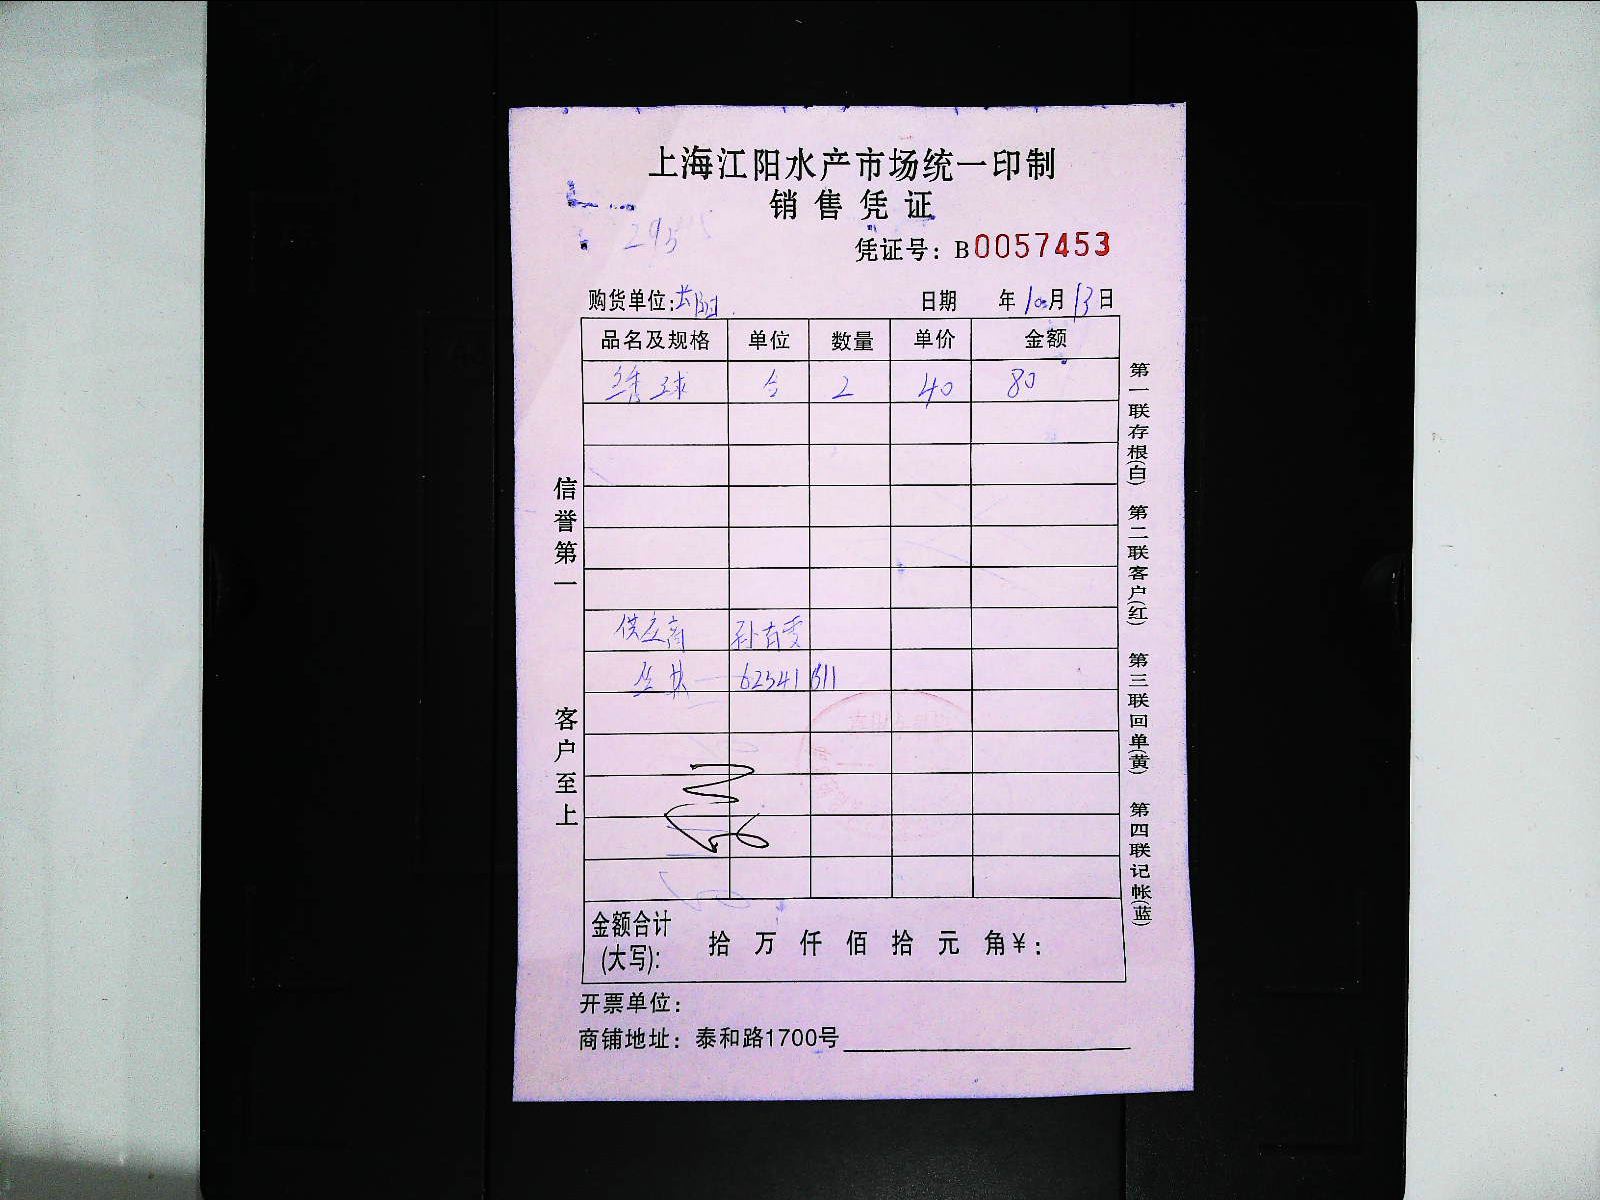 上海江阳水产市场统一印制
销售凭证
295
凭证号：B0057453
购货单位： 日期 年10月13日
品名及规格 单位 数量 单价 金额
绣球 2 40 80
供应商 孙育雯
62541811
信誉第一
客户至上
第一联存根(白) 第二联客户(红) 第三联回单(黄) 第四联记帐(蓝)
金额合计
(大写)： 拾 万 仟 佰 拾 元 角¥：
开票单位：
商铺地址：泰和路1700号